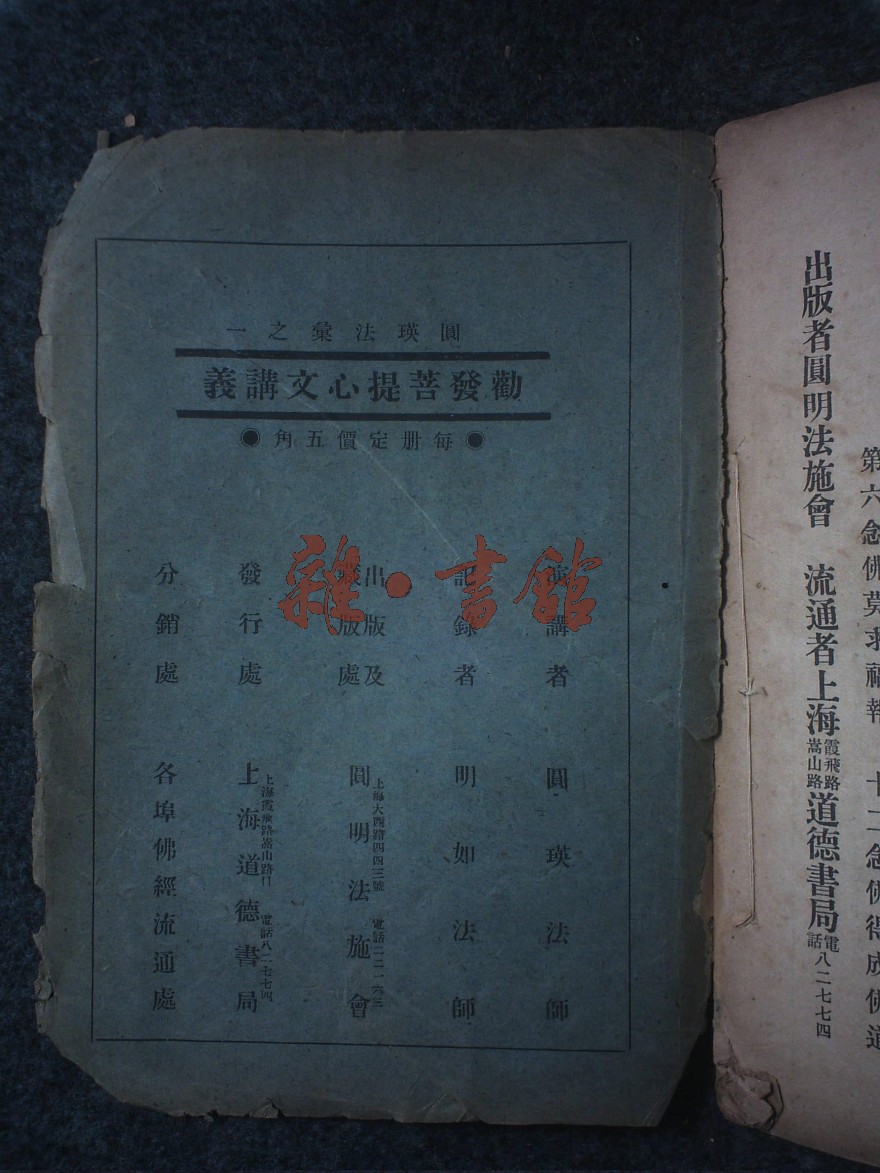 圓瑛法彙之一
勸發菩提心文講義
●每册定價五角●
演講者 圓瑛法師
記錄者 明如法師
出版及
藏版處
上海大西路四四三號 電話二二一六三
圓明法施會
上海霞飛路嵩山路口 電話八二七七四
發行處 上海道德書局
分銷處 各埠佛經流通處
雜·書館
第六念佛莫求福報 十二念佛得成佛道
出版者圓明法施會 流通者上海霞飛路嵩山路道德書局電話八二七七四